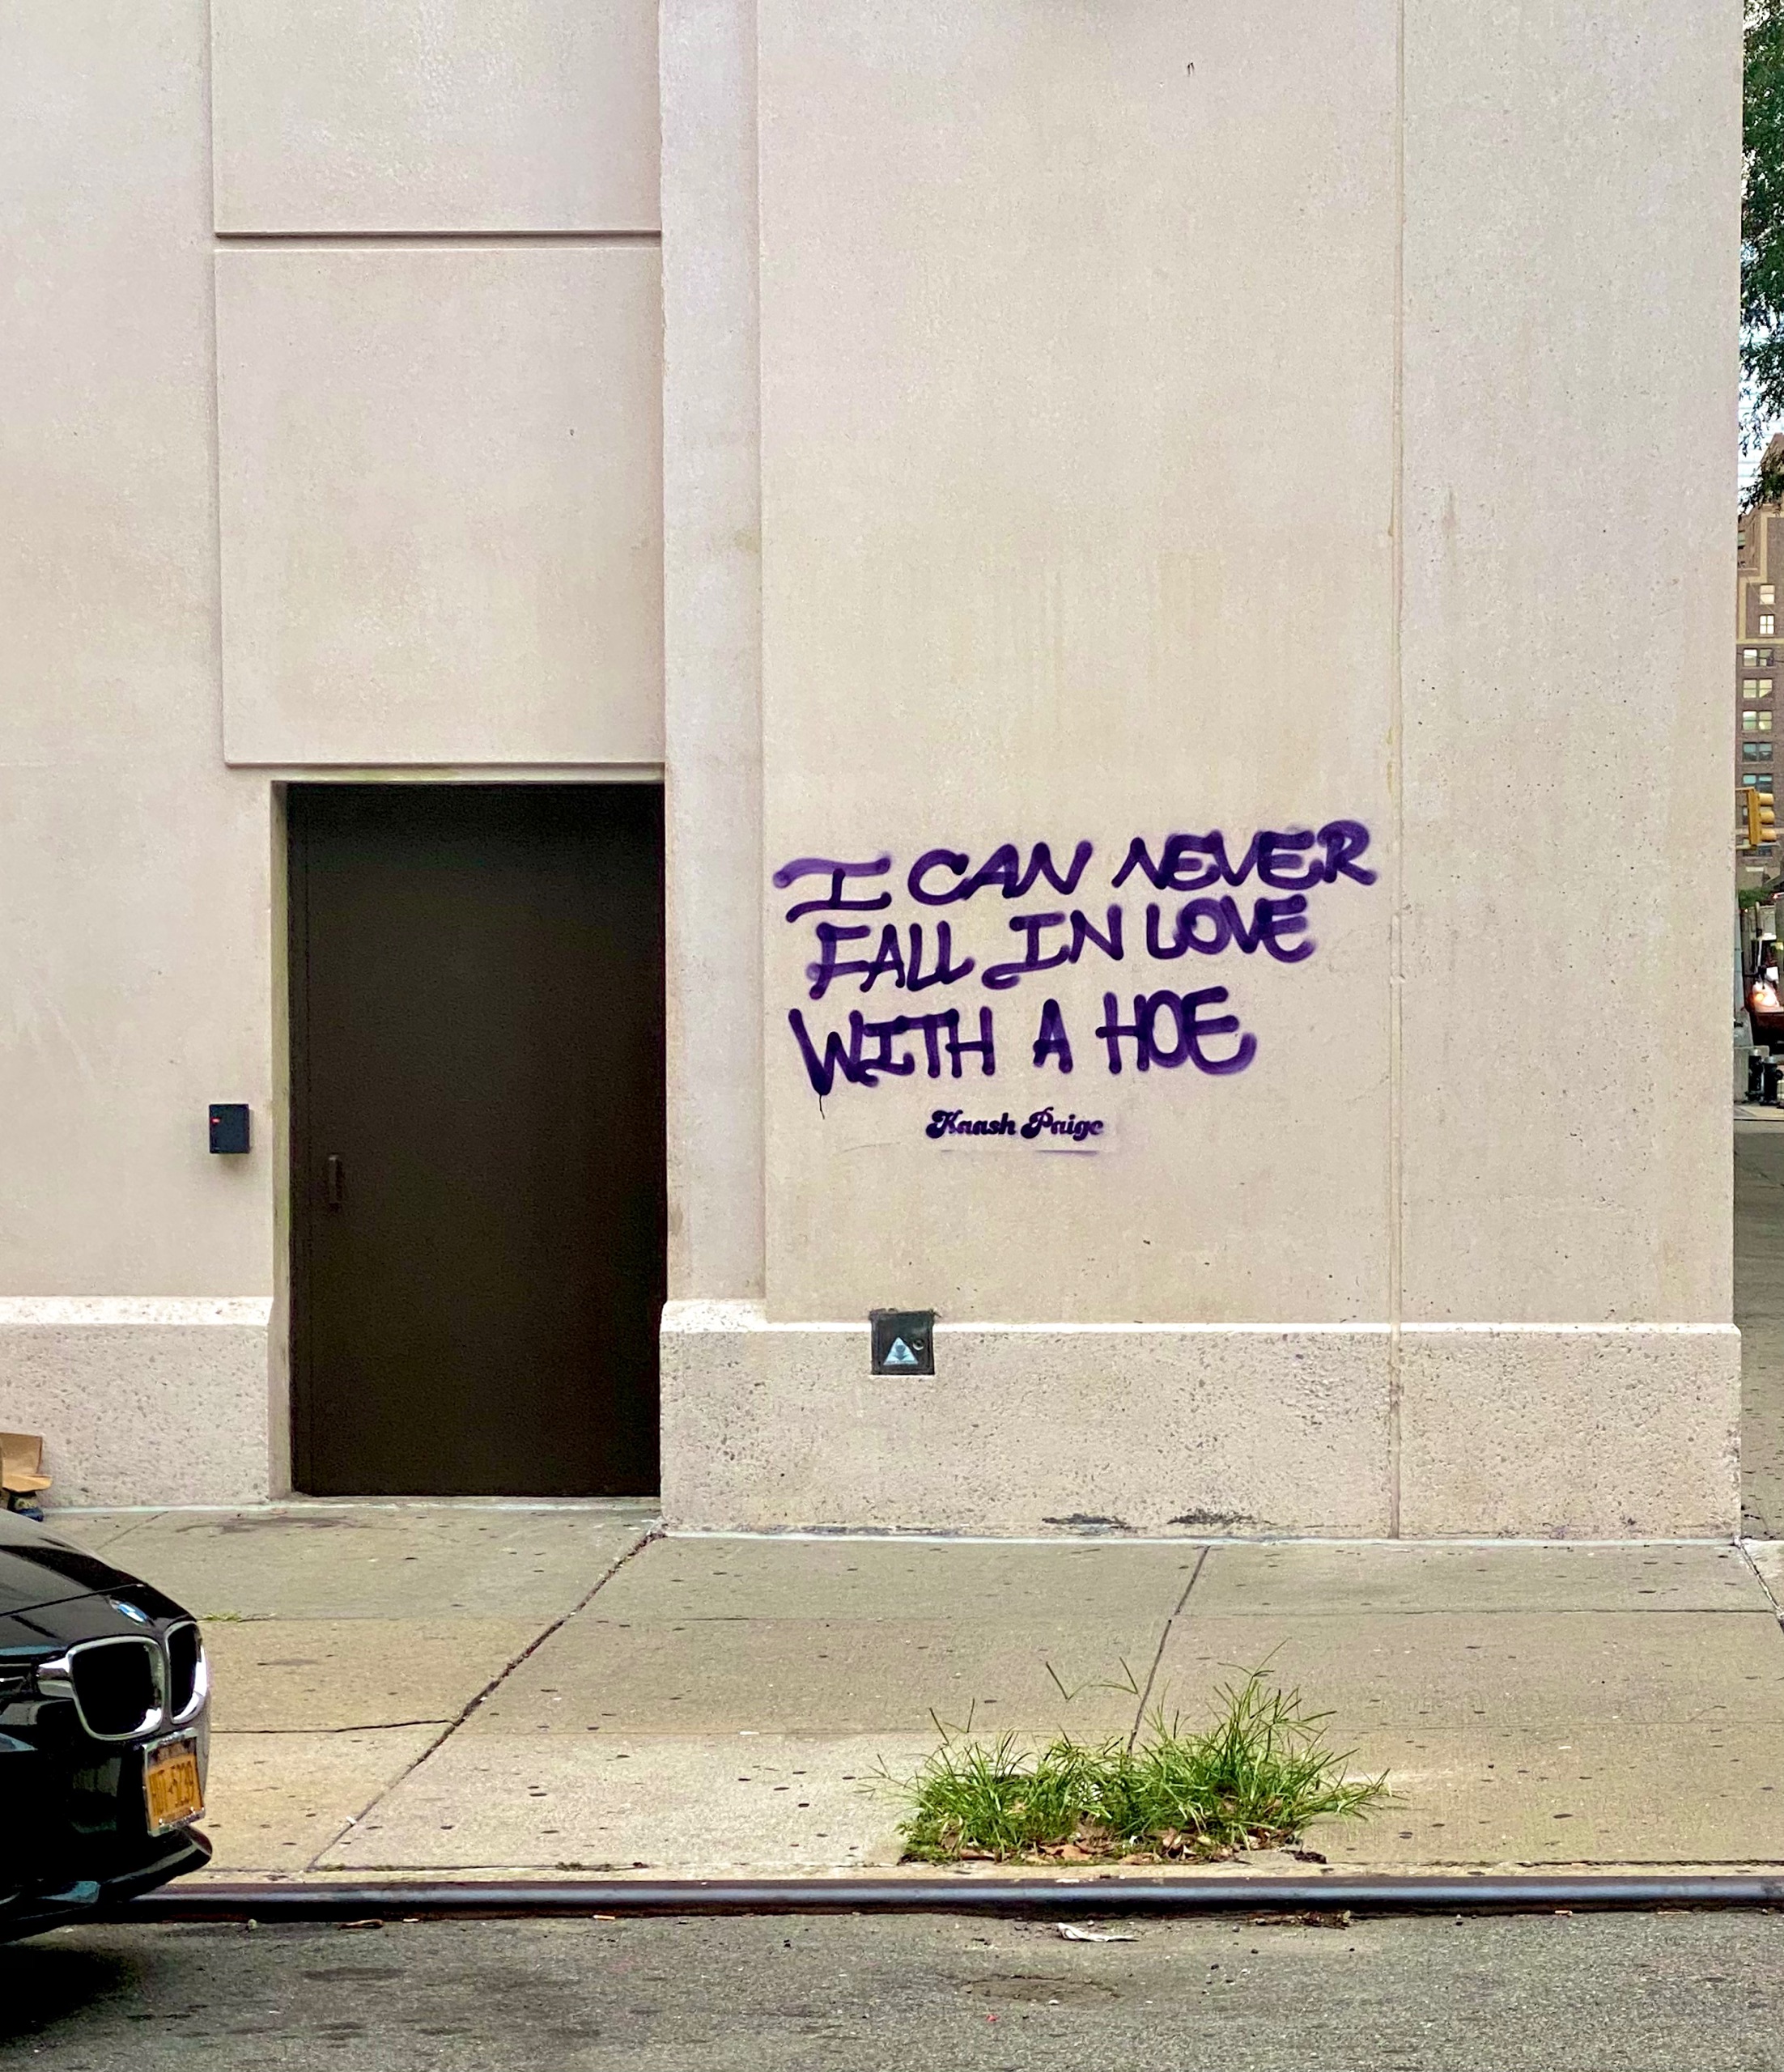 I CAN NEVER
FALL IN LOVE
WITH A HOE
Kaash Paige